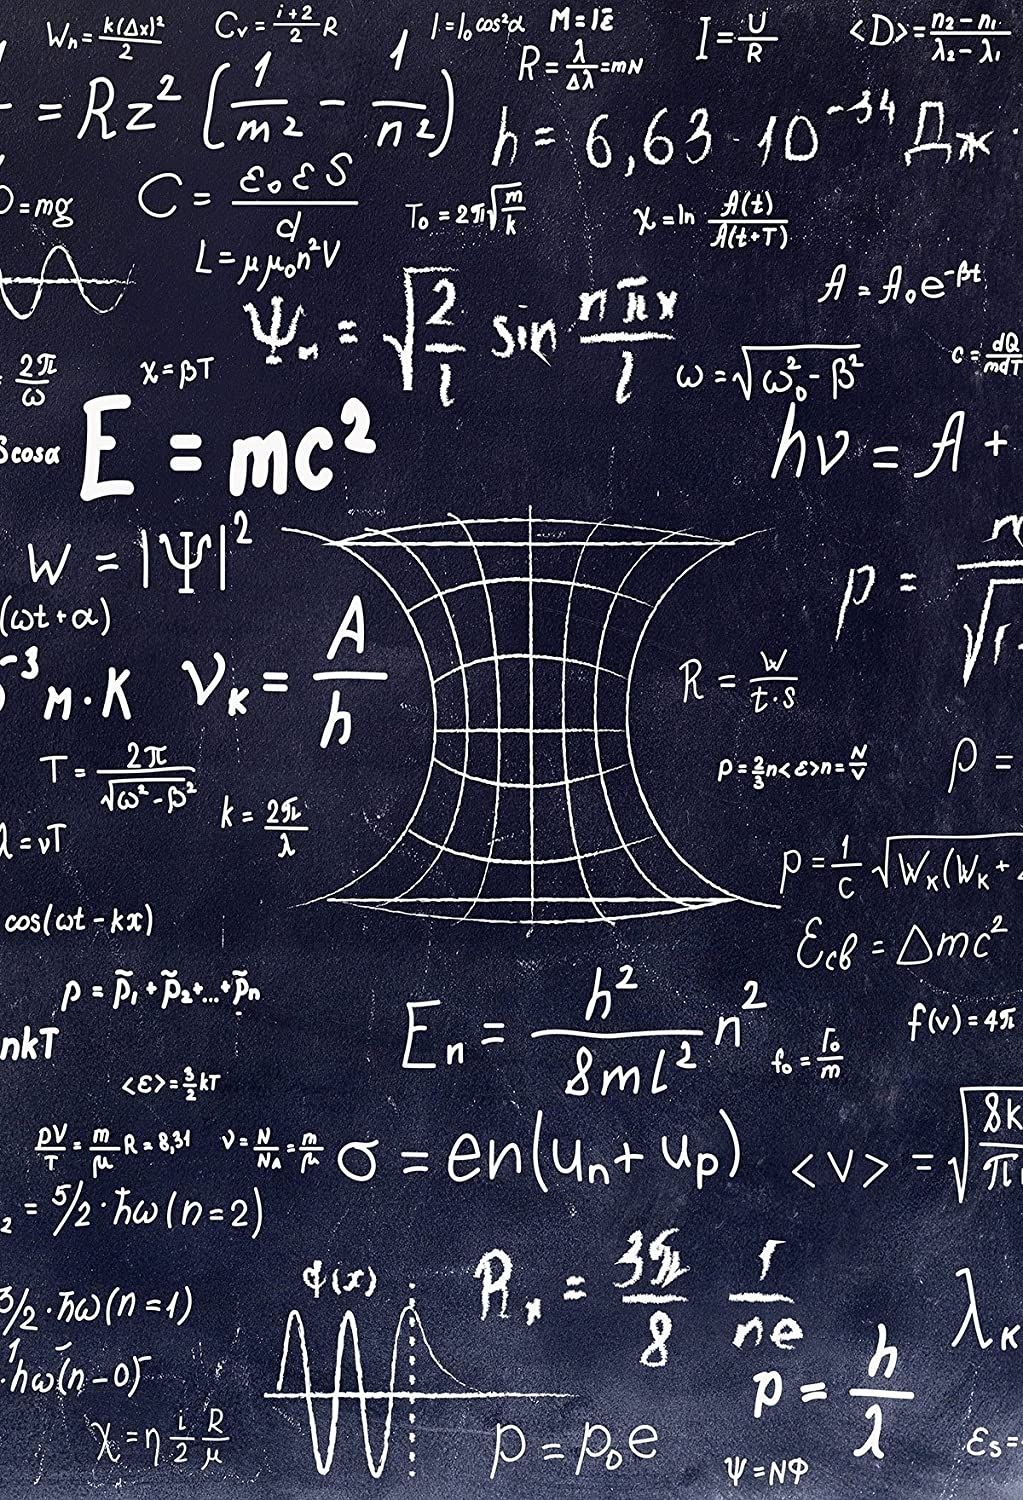 Wₙ = k(Δx)²/2
Cᵥ = i+2/2 R
I = I₀ cos²α
M = IE
I = U/R
<D> = n₂ - n₁/λ₂ - λ₁
R = λ/Δλ = mN
= Rz² (1/m² - 1/n²)
h = 6,63 · 10⁻³⁴ Дж ·
= mg
C = ε₀εS/d
T₀ = 2π√m/k
χ = ln A(t)/A(t+T)
L = μμ₀n²V
A = A₀e⁻βt
Ψₙ = √2/l sin nπx/l
2π/ω
χ = βT
ω = √ω₀² - β²
c = dQ/mdT
Scosα
E = mc²
hν = A +
W = |Ψ|²
p =
(ωt + α)
⁻³ м·К
νₖ = A/h
R = W/t·S
T = 2π/√ω² - β²
p = 2/3 n<ε> n = N/V
ρ =
k = 2π/λ
λ = νT
p = 1/c √Wₖ(Wₖ +
cos(ωt - kx)
Eсв = Δmc²
p = p̃₁ + p̃₂ + ... + p̃ₙ
Eₙ = h²/8ml² n²
f(v) = 4π
nkT
f₀ = F₀/m
<ε> = 3/2 kT
pV/T = m/μ R = 8,31
ν = N/Nᴀ = m/μ
σ = en(uₙ + uₚ)
<v> = √8k/π
₂ = 5/2 · ħω (n=2)
Rₓ = 3π/8 1/ne
ϕ(x)
3/2 · ħω (n=1)
λₖ
· ħω (n-0)
p = h/λ
χ = η i/2 R/μ
p = p₀e
Ψ = NΦ
εs =